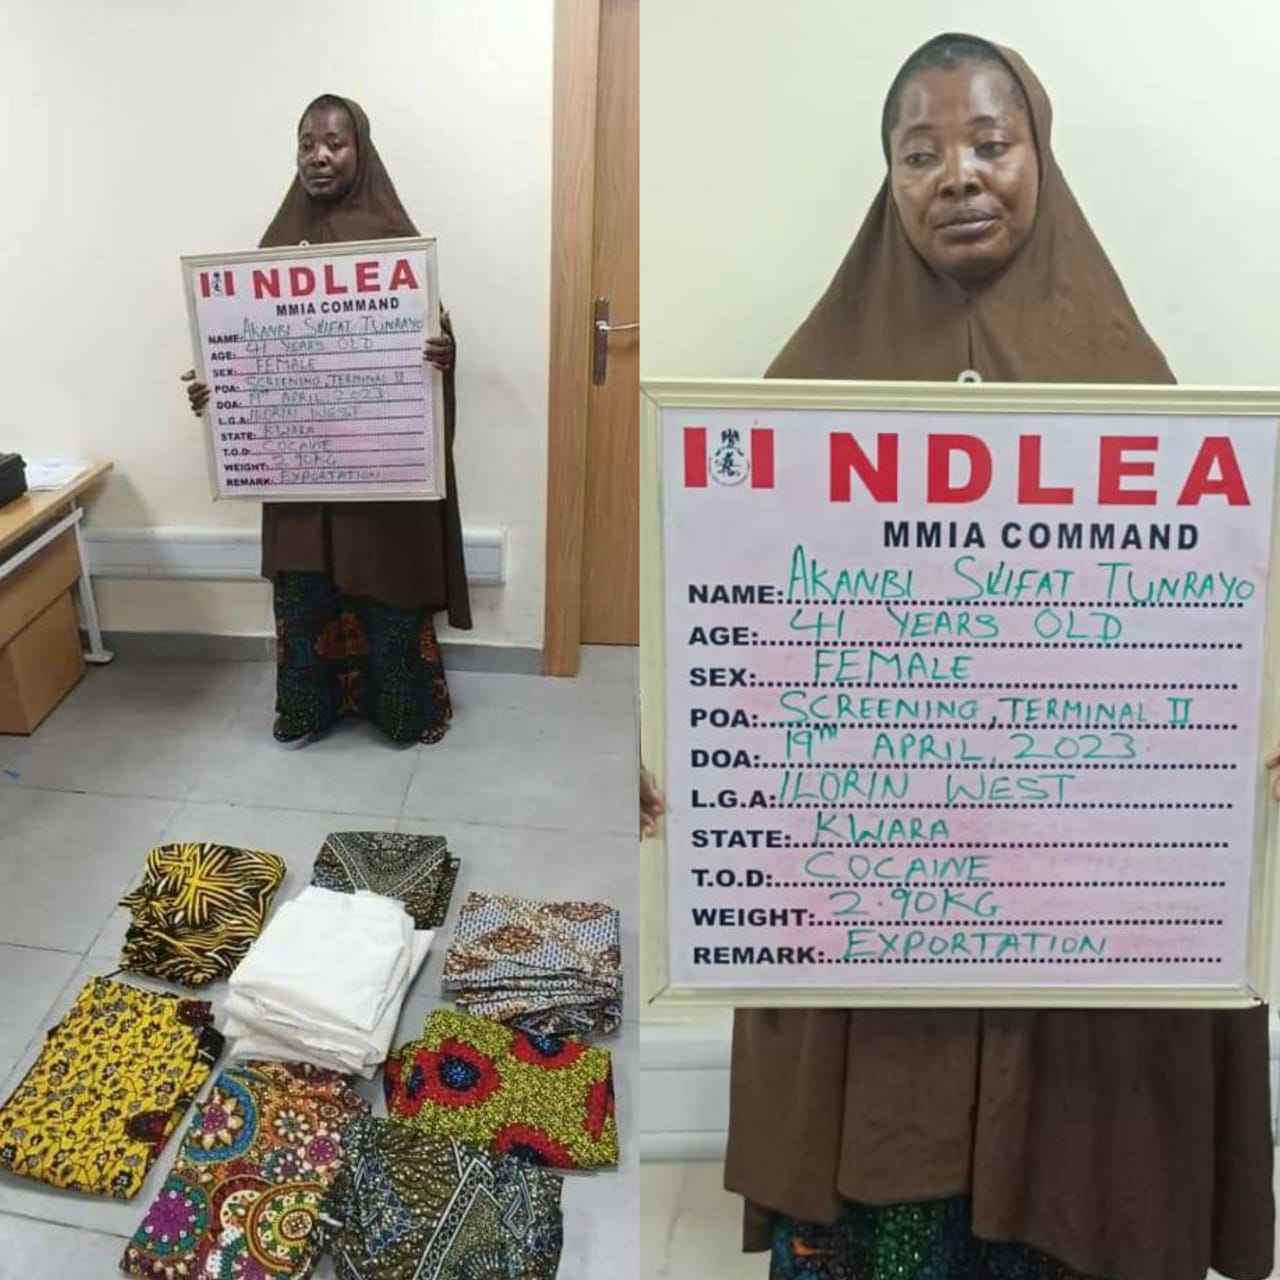 NDLEA
MMIA COMMAND
NAME: AKANBI SKIFAT TUNRAYO
AGE: 41 YEARS OLD
SEX: FEMALE
POA: SCREENING, TERMINAL II
DOA: 19TH APRIL, 2023
L.G.A: ILORIN WEST
STATE: KWARA
T.O.D: COCAINE
WEIGHT: 2.90KG
REMARK: EXPORTATION
NDLEA
MMIA COMMAND
NAME: AKANBI SKIFAT TUNRAYO
AGE: 41 YEARS OLD
SEX: FEMALE
POA: SCREENING, TERMINAL II
DOA: 19TH APRIL, 2023
L.G.A: ILORIN WEST
STATE: KWARA
T.O.D: COCAINE
WEIGHT: 2.90KG
REMARK: EXPORTATION